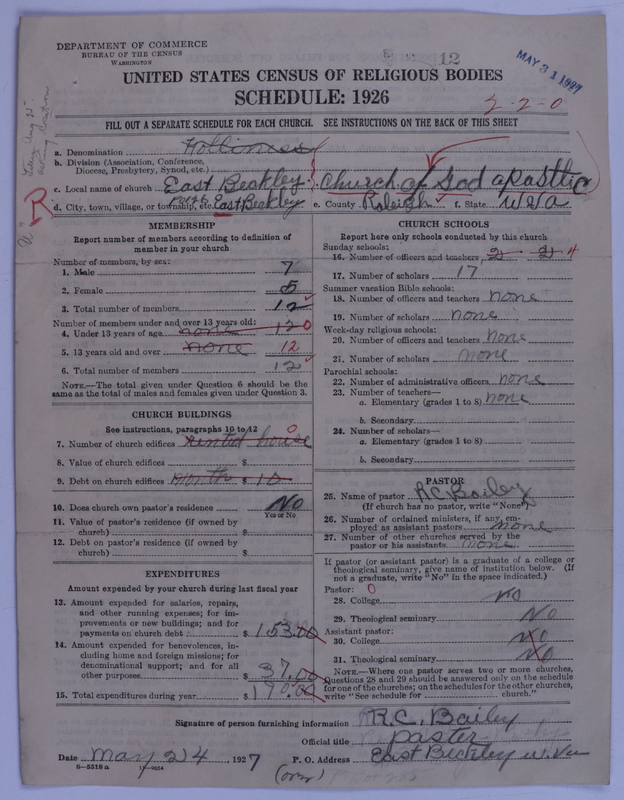 DEPARTMENT OF COMMERCE
BUREAU OF THE CENSUS
WASHINGTON
12
MAY 31 1927
UNITED STATES CENSUS OF RELIGIOUS BODIES
SCHEDULE: 1926
2-2-0
FILL OUT A SEPARATE SCHEDULE FOR EACH CHURCH. SEE INSTRUCTIONS ON THE BACK OF THIS SHEET
a. Denomination Holliness
b. Division (Association, Conference, Diocese, Presbytery, Synod, etc.)
c. Local name of church East Beckley church of God apostlic
d. City, town, village, or township, etc. East Beckley e. County Raleigh f. State W Va
R
MEMBERSHIP
Report number of members according to definition of member in your church
Number of members, by sex:
1. Male 7
2. Female 5
3. Total number of members 12
Number of members under and over 13 years old:
4. Under 13 years of age none 12 0
5. 13 years old and over none 12
6. Total number of members 12
NOTE.—The total given under Question 6 should be the same as the total of males and females given under Question 3.
CHURCH BUILDINGS
See instructions, paragraphs 10 to 12
7. Number of church edifices rented house 0
8. Value of church edifices $
9. Debt on church edifices month $ 10
10. Does church own pastor's residence No
Yes or No
11. Value of pastor's residence (if owned by church) $
12. Debt on pastor's residence (if owned by church) $
EXPENDITURES
Amount expended by your church during last fiscal year
13. Amount expended for salaries, repairs, and other running expenses; for improvements or new buildings; and for payments on church debt $ 153.00
14. Amount expended for benevolences, including home and foreign missions; for denominational support; and for all other purposes $ 37.00
15. Total expenditures during year $ 190.00
CHURCH SCHOOLS
Report here only schools conducted by this church
Sunday schools:
16. Number of officers and teachers 2 2 4
17. Number of scholars 17
Summer vacation Bible schools:
18. Number of officers and teachers none
19. Number of scholars none
Week-day religious schools:
20. Number of officers and teachers none
21. Number of scholars none
Parochial schools:
22. Number of administrative officers none
23. Number of teachers—
a. Elementary (grades 1 to 8) none
b. Secondary
24. Number of scholars—
a. Elementary (grades 1 to 8)
b. Secondary
PASTOR
25. Name of pastor R C Bailey
(If church has no pastor, write "None")
26. Number of ordained ministers, if any, employed as assistant pastors none
27. Number of other churches served by the pastor or his assistants none
If pastor (or assistant pastor) is a graduate of a college or theological seminary, give name of institution below. (If not a graduate, write "No" in the space indicated.)
Pastor: 0
28. College no
29. Theological seminary No
Assistant pastor:
30. College No
31. Theological seminary No
NOTE.—Where one pastor serves two or more churches, Questions 28 and 29 should be answered only on the schedule for one of the churches; on the schedules for the other churches, write "See schedule for church."
Signature of person furnishing information R.C. Bailey
Official title paster
Date may 24, 1927 P. O. Address East Beckley W. Va
8—5518a
(over)